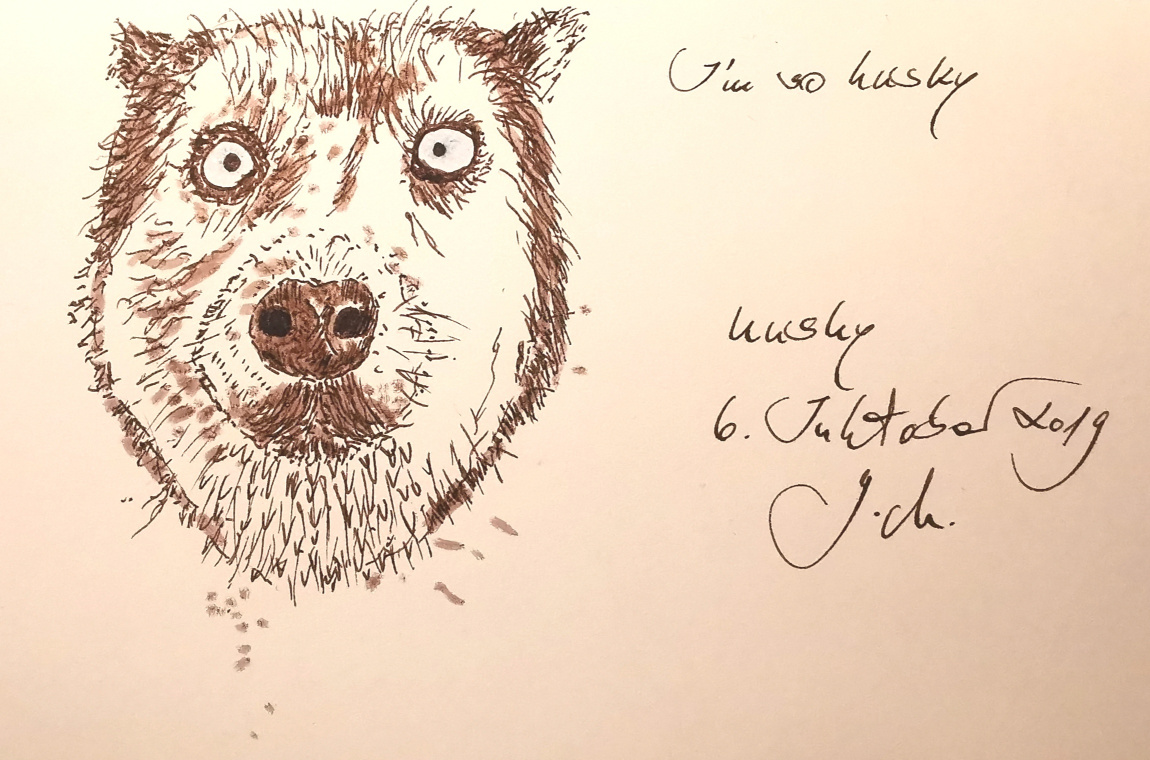 I'm so husky
husky
6. Inktober 2019
J.ch.